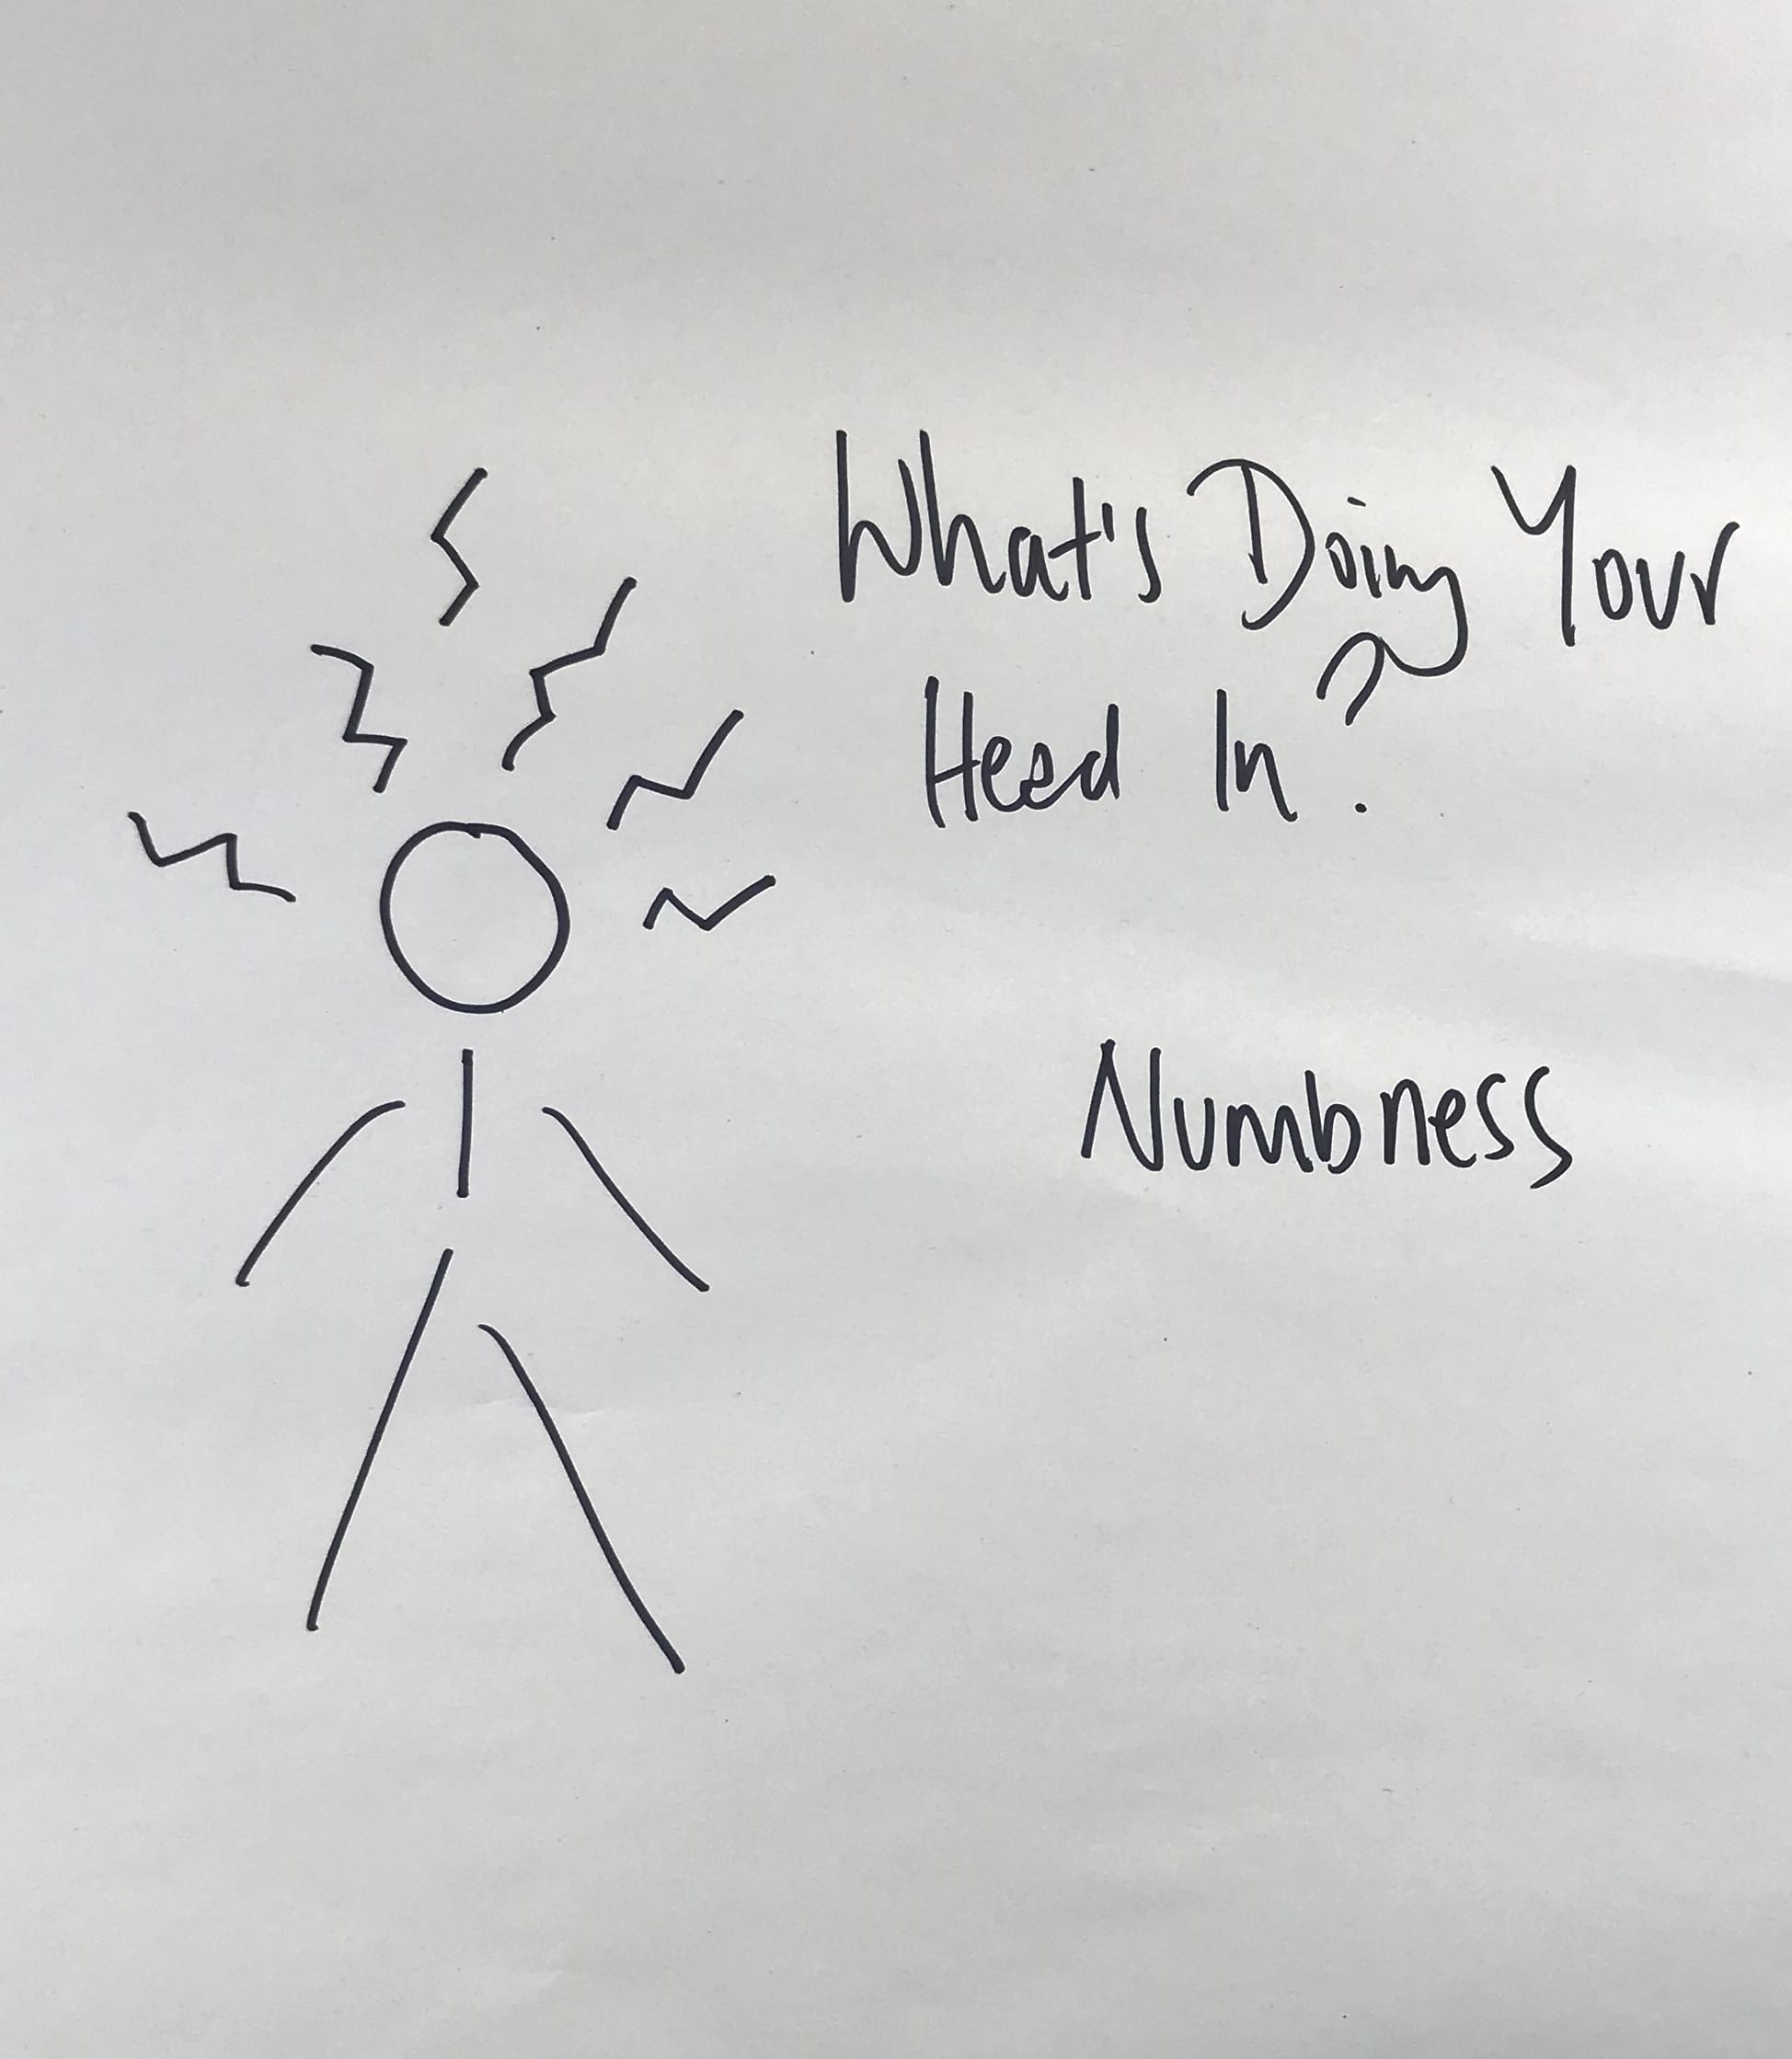 What's Doing Your
Head In?
Numbness